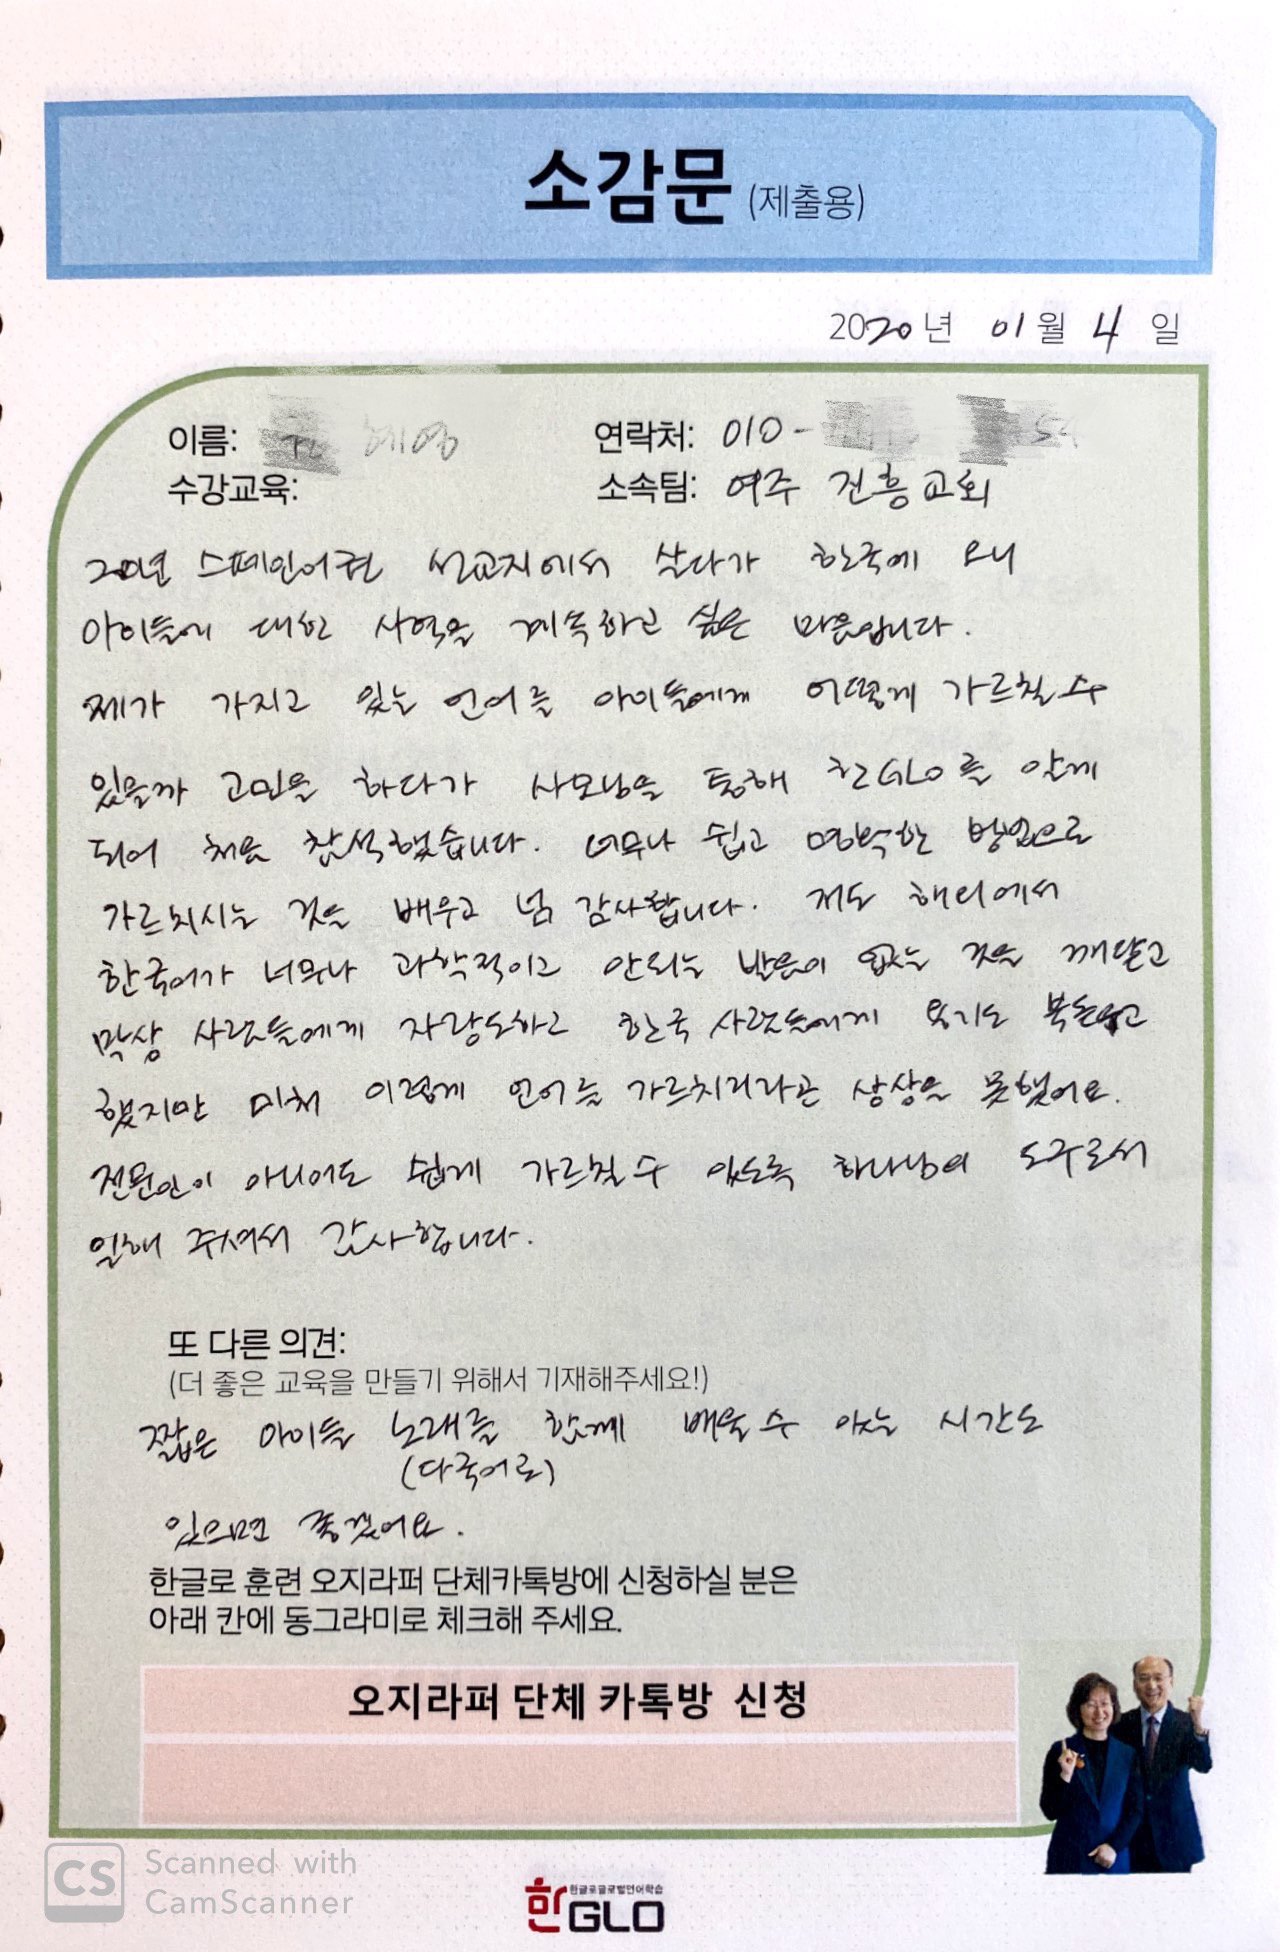 소감문 (제출용)
2020년 01월 4일
이름: 혜영 연락처: 010-
수강교육: 소속팀: 여주 전흥교회
20년 스페인어권 선교지에서 살다가 한국에 오니
아이들에 대한 사역을 계속하고 싶은 마음입니다.
제가 가지고 있는 언어를 아이들에게 어떻게 가르칠 수
있을까 고민을 하다가 사모님을 통해 한GLO를 알게
되어 처음 참석했습니다. 너무나 쉽고 명확한 방법으로
가르치시는 것을 배우고 넘 감사합니다. 저도 해외에서
한국어가 너무나 과학적이고 안되는 발음이 없는 것을 깨닫고
막상 사람들에게 자랑도하고 한국 사람들에게 용기도 북돋우고
했지만 미처 이렇게 언어를 가르치리라곤 상상을 못했어요.
전문인이 아니어도 쉽게 가르칠 수 있도록 하나님의 도구로서
일해 주셔서 감사합니다.
또 다른 의견:
(더 좋은 교육을 만들기 위해서 기재해주세요!)
짧은 아이들 노래를 함께 배울 수 있는 시간도
(다국어로)
있으면 좋겠어요.
한글로 훈련 오지라퍼 단체카톡방에 신청하실 분은
아래 칸에 동그라미로 체크해 주세요.
오지라퍼 단체 카톡방 신청
CS Scanned with
CamScanner
한글로글로벌언어학습
한GLO